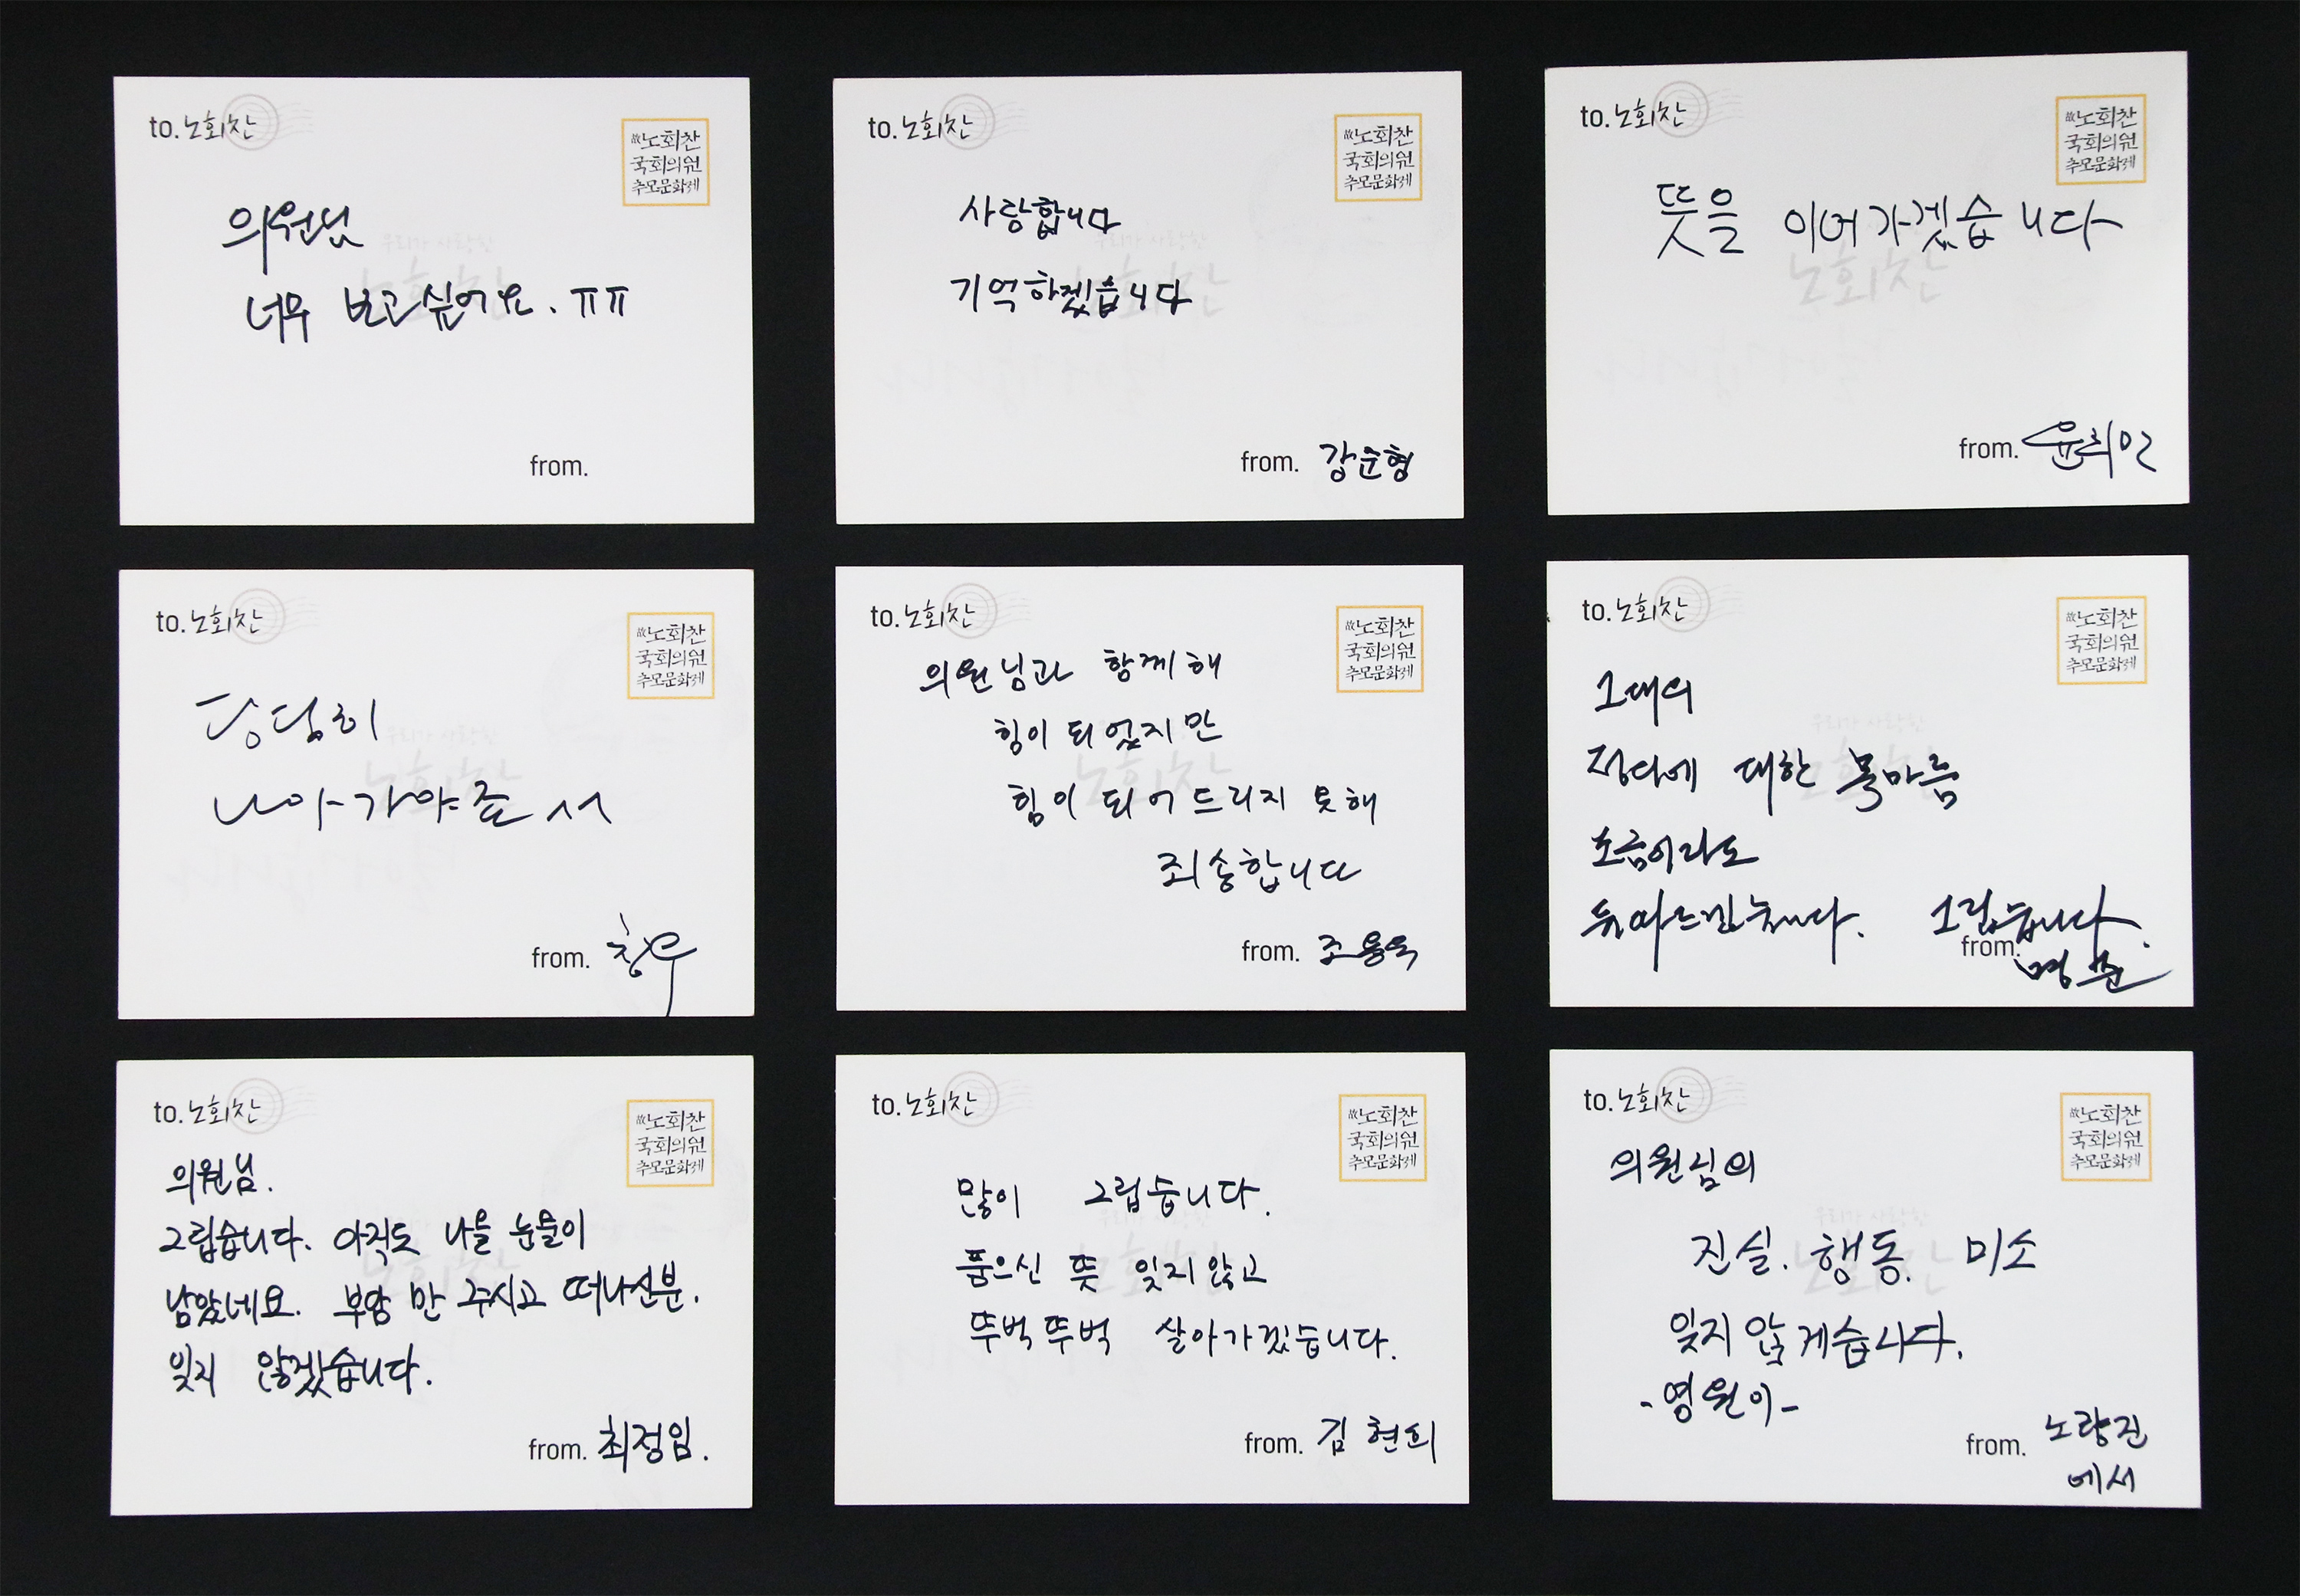 to. 노회찬
故노회찬
국회의원
추모문화제
의원님
너무 보고싶어요. ㅠㅠ
from.
to. 노회찬
故노회찬
국회의원
추모문화제
사랑합니다
기억하겠습니다
from. 강순형
to. 노회찬
故노회찬
국회의원
추모문화제
뜻을 이어가겠습니다
from. 윤희
to. 노회찬
故노회찬
국회의원
추모문화제
당당히
나아가야죠
from.
to. 노회찬
故노회찬
국회의원
추모문화제
의원님과 함께해
힘이 되었지만
힘이 되어드리지 못해
죄송합니다
from. 조용욱
to. 노회찬
故노회찬
국회의원
추모문화제
그대의
정의에 대한 목마름
조금이라도
그립습니다.
from.
to. 노회찬
故노회찬
국회의원
추모문화제
의원님.
그립습니다. 아직도 나올 눈물이
남았네요. 부암 만 주시고 떠나신분.
잊지 않겠습니다.
from. 최정임.
to. 노회찬
故노회찬
국회의원
추모문화제
많이 그립습니다.
품으신 뜻 잊지 않고
뚜벅뚜벅 살아가겠습니다.
from. 김현희
to. 노회찬
故노회찬
국회의원
추모문화제
의원님의
진실. 행동. 미소
잊지 않게습니다.
-영원이-
from. 노량진
에서